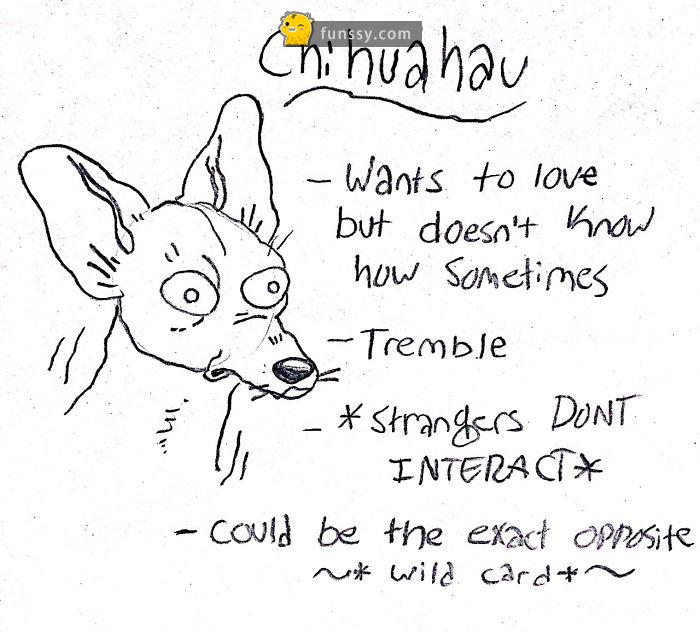 funssy.com
Chihuahau
- Wants to love
but doesn't know
how sometimes
- Tremble
- *strangers DONT
INTERACT*
- could be the exact opposite
~* wild card*~